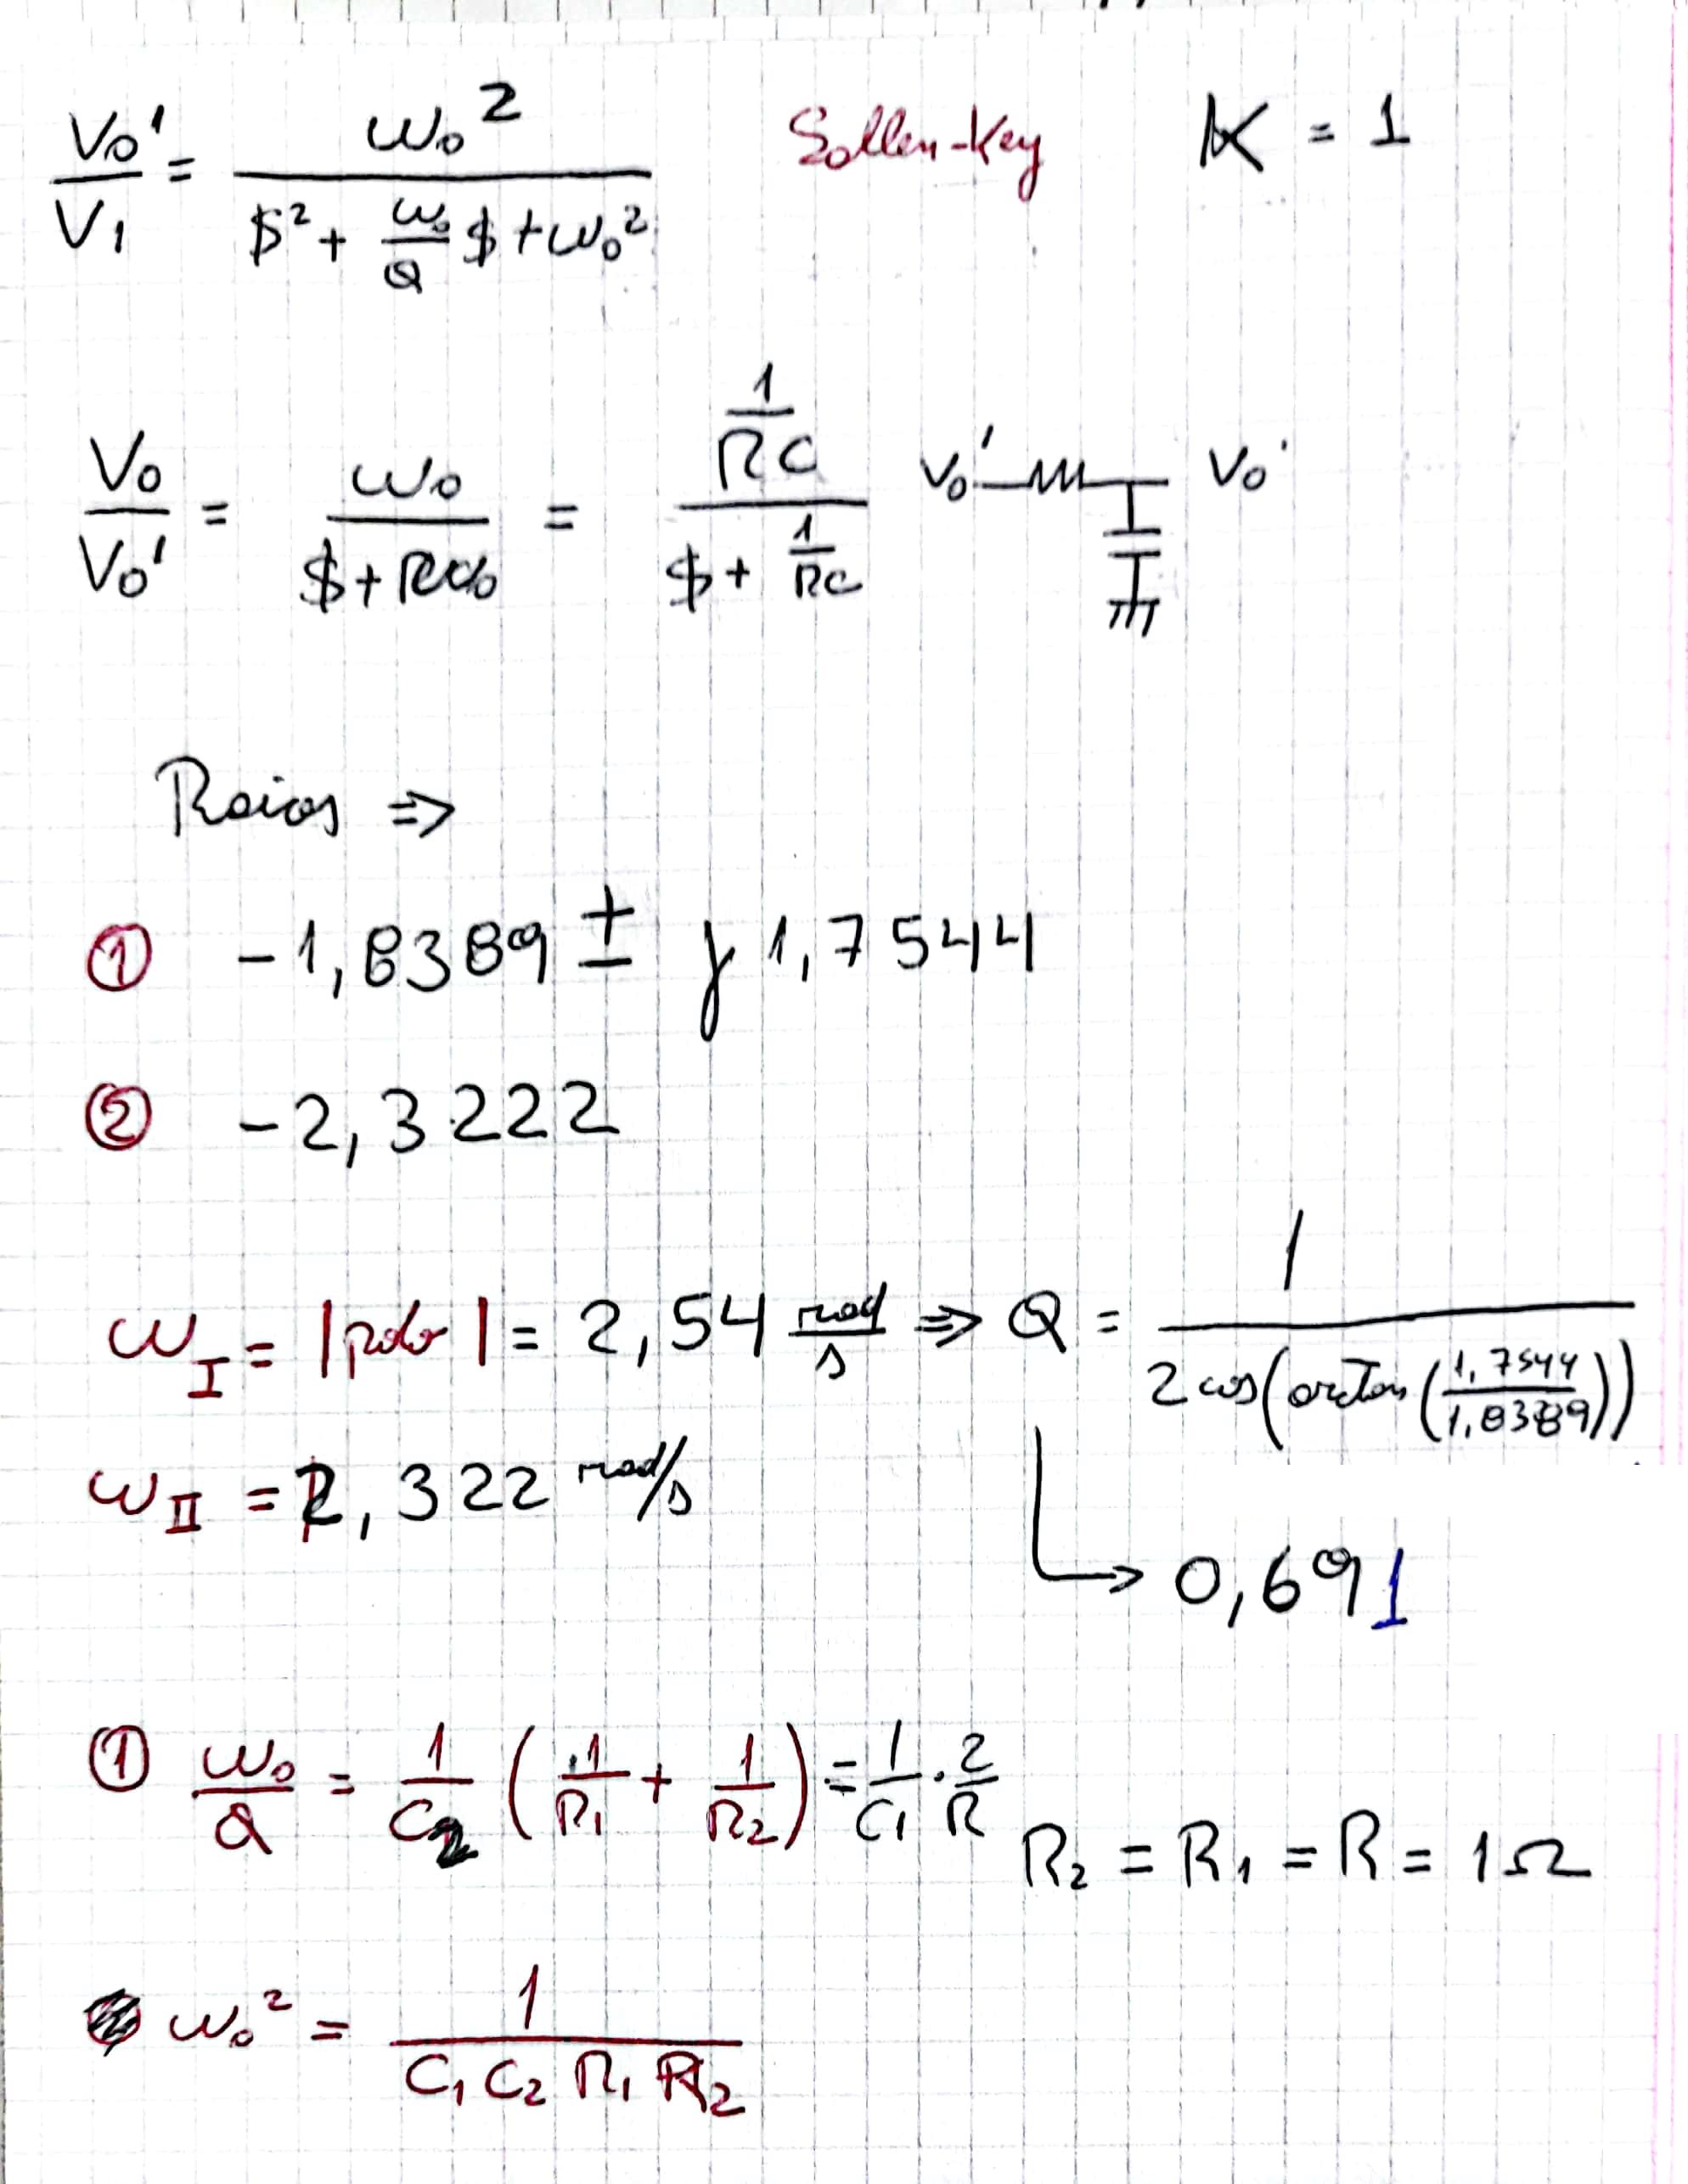 V₀'/V₁ = ω₀²/($² + (ω₀/Q) $ + ω₀²) Sallen-Key K = 1
V₀/V₀' = ω₀/($ + ω₀) = (1/RC)/($ + 1/RC) V₀' V₀
Raices ⇒
① -1,8389 ± j 1,7544
② -2,3222
ω_I = |polo| = 2,54 rad/s ⇒ Q = 1/(2 cos(arctan(1,7544/1,8389)))
ω_II = 2,322 rad/s
↳ 0,691
① ω₀/Q = 1/C₂ (1/R₁ + 1/R₂) = 1/C₁ · 2/R
R₂ = R₁ = R = 1Ω
ω₀² = 1/(C₁ C₂ R₁ R₂)